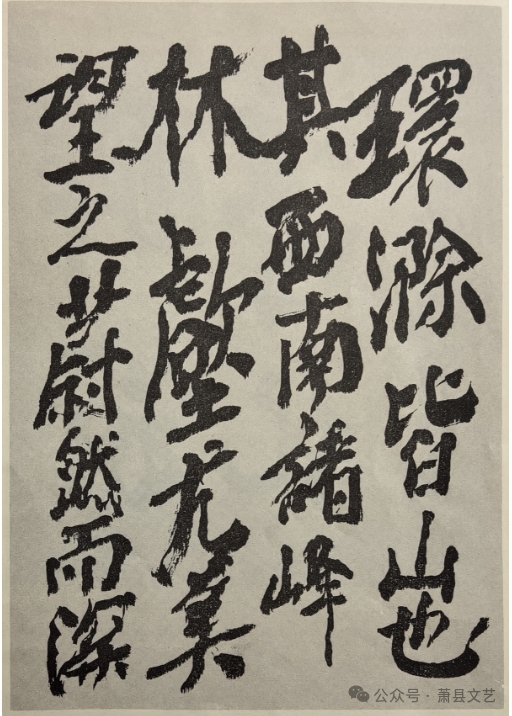 環滁皆山也
其西南諸峰
林壑尤美
望之蔚然而深
公众号·萧县文艺